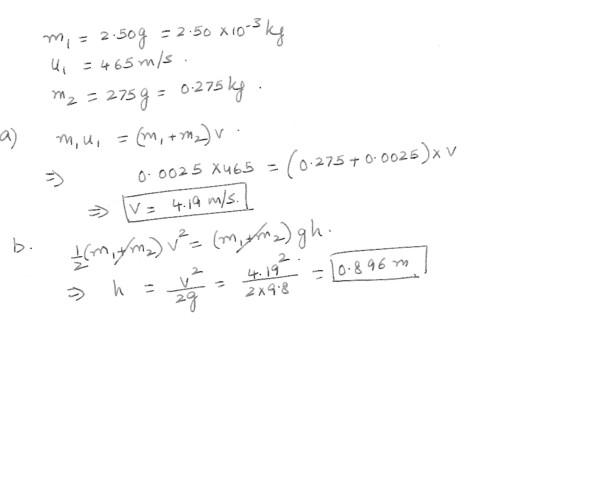 m₁ = 2.50g = 2.50 x10⁻³ kg
u₁ = 465 m/s .
m₂ = 275g = 0.275 kg .
a) m₁u₁ = (m₁+m₂) v .
⇒ 0.0025 x465 = (0.275 + 0.0025) x v
⇒ V = 4.19 m/s.
b. ½(m₁+m₂) v² = (m₁+m₂) gh.
⇒ h = v²/2g = 4.19²/2x9.8 = 0.896 m